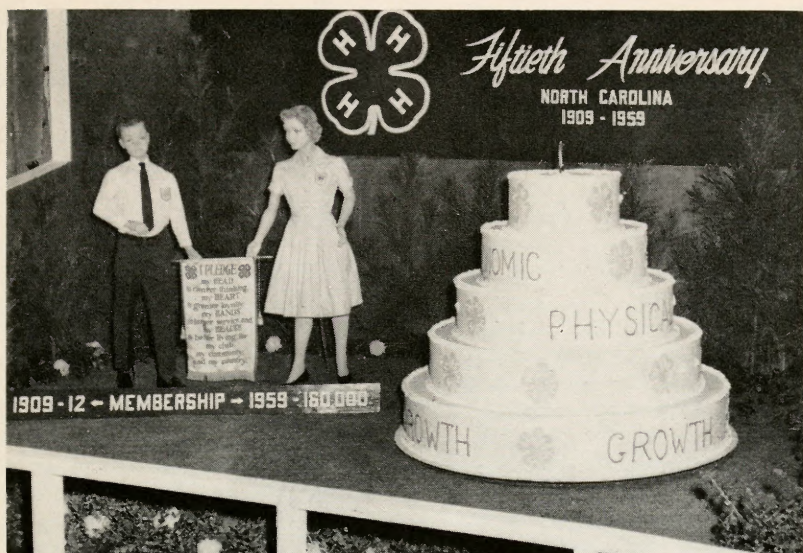 H H
H H
Fiftieth Anniversary
NORTH CAROLINA
1909 - 1959
I PLEDGE
my HEAD
to clearer thinking,
my HEART
to greater loyalty,
my HANDS
to larger service, and
my HEALTH
to better living, for
my club,
my community,
and my country.
OMIC
PHYSICA
ROWTH GROWTH
1909 - 12 ← MEMBERSHIP → 1959 - 160,000